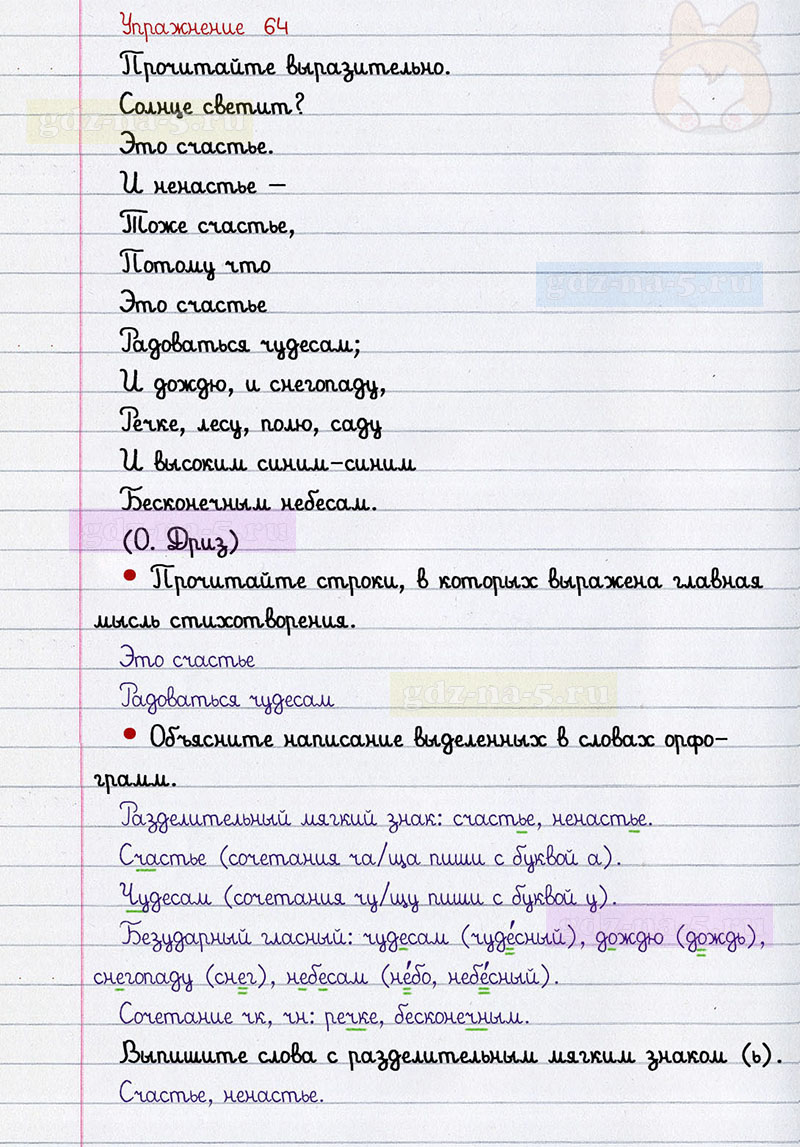 Упражнение 64
Прочитайте выразительно.
Солнце светит?
gdz-na-5.ru
Это счастье.
И ненастье –
Тоже счастье,
Потому что
gdz-na-5.ru
Это счастье
Радоваться чудесам;
И дождю, и снегопаду,
Речке, лесу, полю, саду
И высоким синим-синим
Бесконечным небесам.
gdz-na-5.ru
(О. Дриз)
• Прочитайте строки, в которых выражена главная
мысль стихотворения.
Это счастье
Радоваться чудесам
gdz-na-5.ru
• Объясните написание выделенных в словах орфо-
грамм.
Разделительный мягкий знак: счастье, ненастье.
Счастье (сочетания ча/ща пиши с буквой а).
Чудесам (сочетания чу/щу пиши с буквой у).
gdz-na-5.ru
Безударный гласный: чудесам (чуде́сный), дождю (дождь),
снегопаду (снег), небесам (не́бо, небе́сный).
Сочетание чк, чн: речке, бесконечным.
Выпишите слова с разделительным мягким знаком (ь).
Счастье, ненастье.